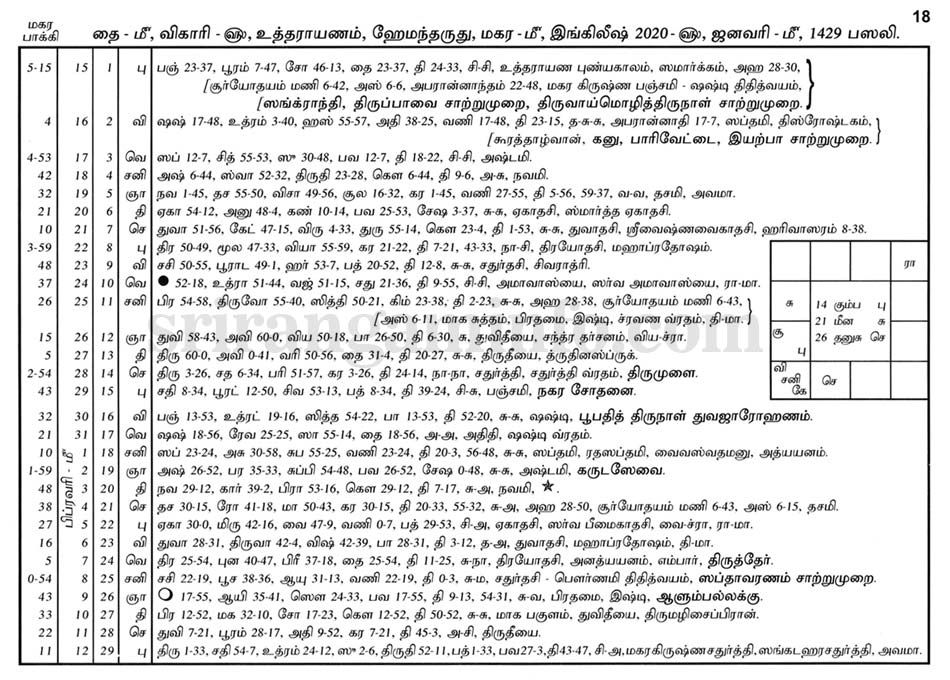 18
மகர
பாக்கி
தை - மீ, விகாரி - ௵, உத்தராயணம், ஹேமந்தருது, மகர - மீ, இங்கிலீஷ் 2020-௵, ஜனவரி - மீ, 1429 பஸலி.
5-15 15 1 பு பஞ் 23-37, பூரம் 7-47, சோ 46-13, தை 23-37, தி 24-33, சி-சி, உத்தராயண புண்யகாலம், ஸமார்க்கம், அஹ 28-30,
[சூர்யோதயம் மணி 6-42, அஸ் 6-6, அபரான்னாந்தம் 22-48, மகர கிருஷ்ண பஞ்சமி - ஷஷ்டி திதித்வயம்,
[ஸங்க்ராந்தி, திருப்பாவை சாற்றுமுறை, திருவாய்மொழித்திருநாள் சாற்றுமுறை.
4 16 2 வி ஷஷ் 17-48, உத்ரம் 3-40, ஹஸ் 55-57, அதி 38-25, வணி 17-48, தி 23-15, த-சு-சு, அபரான்னாதி 17-7, ஸப்தமி, திஸ்ரோஷ்டகம்,
[கூரத்தாழ்வான், கனு, பாரிவேட்டை, இயற்பா சாற்றுமுறை.
4-53 17 3 வெ ஸப் 12-7, சித் 55-53, ஸு 30-48, பவ 12-7, தி 18-22, சி-சி, அஷ்டமி.
42 18 4 சனி அஷ் 6-44, ஸ்வா 52-32, திருதி 23-28, கௌ 6-44, தி 9-6, அ-சு, நவமி.
32 19 5 ஞா நவ 1-45, தச 55-50, விசா 49-56, சூல 16-32, கர 1-45, வணி 27-55, தி 5-56, 59-37, வ-வ, தசமி, அவமா.
21 20 6 தி ஏகா 54-12, அனு 48-4, கண் 10-14, பவ 25-53, சேஷ 3-37, சு-சு, ஏகாதசி, ஸ்மார்த்த ஏகாதசி.
10 21 7 செ துவா 51-56, கேட் 47-15, விரு 4-33, துரு 55-14, கௌ 23-4, தி 1-53, சு-சு, துவாதசி, ஸ்ரீவைஷ்ணவைகாதசி, ஹரிவாஸரம் 8-38.
3-59 22 8 பு திர 50-49, மூல 47-33, வியா 55-59, கர 21-22, தி 7-21, 43-33, நா-சி, திரயோதசி, மஹாப்ரதோஷம்.
48 23 9 வி சசி 50-55, பூராட 49-1, ஹர் 53-7, பத் 20-52, தி 12-8, சு-சு, சதுர்தசி, சிவராத்ரி.
37 24 10 வெ ● 52-18, உத்ரா 51-44, வஜ் 51-15, சது 21-36, தி 9-55, சி-சி, அமாவாஸ்யை, ஸர்வ அமாவாஸ்யை, ரா-மா.
26 25 11 சனி பிர 54-58, திருவோ 55-40, ஸித்தி 50-21, கிம் 23-38, தி 2-23, சு-சு, அஹ 28-38, சூர்யோதயம் மணி 6-43,
[அஸ் 6-11, மாக சுத்தம், பிரதமை, இஷ்டி, ச்ரவண வ்ரதம், தி-மா.
15 26 12 ஞா துவி 58-43, அவி 60-0, விய 50-18, பா 26-50, தி 6-30, சு, துவிதீயை, சந்த்ர தர்சனம், விய-ச்ரா.
5 27 13 தி திரு 60-0, அவி 0-41, வரி 50-56, தை 31-4, தி 20-27, சு-சு, திருதீயை, த்ருதினஸ்ப்ருக்.
2-54 28 14 செ திரு 3-26, சத 6-34, பரி 51-57, கர 3-26, தி 24-14, நா-நா, சதுர்த்தி, சதுர்த்தி வ்ரதம், திருமுளை.
43 29 15 பு சதி 8-34, பூரட் 12-50, சிவ 53-13, பத் 8-34, தி 39-24, சி-சு, பஞ்சமி, நகர சோதனை.
ரா
சு
14 கும்ப பு
21 மீன சு
26 தனுசு செ
சூ
பு
வி
சனி
கே
செ
32 30 16 வி பஞ் 13-53, உத்ரட் 19-16, ஸித்த 54-22, பா 13-53, தி 52-20, சு-சு, ஷஷ்டி, பூபதித் திருநாள் துவஜாரோஹணம்.
21 31 17 வெ ஷஷ் 18-56, ரேவ 25-25, ஸா 55-14, தை 18-56, அ-அ, அதிதி, ஷஷ்டி வ்ரதம்.
பிப்ரவரி - மீ
10 1 18 சனி ஸப் 23-24, அசு 30-58, சுப 55-25, வணி 23-24, தி 20-3, 56-48, சு-சு, ஸப்தமி, ரதஸப்தமி, வைவஸ்வதமனு, அத்யயனம்.
1-59 2 19 ஞா அஷ் 26-52, பர 35-33, சுப்பி 54-48, பவ 26-52, சேஷ 0-48, சு-சு, அஷ்டமி, கருடஸேவை.
48 3 20 தி நவ 29-12, கார் 39-2, பிரா 53-16, கௌ 29-12, தி 7-17, சு-அ, நவமி, ★.
38 4 21 செ தச 30-15, ரோ 41-18, மா 50-43, கர 30-15, தி 20-33, 55-32, சு-அ, அஹ 28-50, சூர்யோதயம் மணி 6-43, அஸ் 6-15, தசமி.
27 5 22 பு ஏகா 30-0, மிரு 42-16, வை 47-9, வணி 0-7, பத் 29-53, சி-அ, ஏகாதசி, ஸர்வ பீமைகாதசி, வை-ச்ரா, ரா-மா.
16 6 23 வி துவா 28-31, திருவா 42-4, விஷ் 42-39, பா 28-31, தி 3-12, த-அ, துவாதசி, மஹாப்ரதோஷம், தி-மா.
5 7 24 வெ திர 25-54, புன 40-47, பிரீ 37-18, தை 25-54, தி 11-25, சு-நா, திரயோதசி, அனத்யயனம், எம்பார், திருத்தேர்.
0-54 8 25 சனி சசி 22-19, பூச 38-36, ஆயு 31-13, வணி 22-19, தி 0-3, சு-ம, சதுர்தசி - பௌர்ணமி திதித்வயம், ஸப்தாவரணம் சாற்றுமுறை.
43 9 26 ஞா ○ 17-55, ஆயி 35-41, ஸௌ 24-33, பவ 17-55, தி 9-13, 54-31, சு-வ, பிரதமை, இஷ்டி, ஆளும்பல்லக்கு.
33 10 27 தி பிர 12-52, மக 32-10, சோ 17-23, கௌ 12-52, தி 50-52, சு-சு, மாக பகுளம், துவிதீயை, திருமழிசைப்பிரான்.
22 11 28 செ துவி 7-21, பூரம் 28-17, அதி 9-52, கர 7-21, தி 45-3, அ-சி, திருதீயை.
11 12 29 பு திரு 1-33, சதி 54-7, உத்ரம் 24-12, ஸு 2-6, திருதி 52-11, பத் 1-33, பவ 27-3, தி 43-47, சி-அ, மகரகிருஷ்ணசதுர்த்தி, ஸங்கடஹரசதுர்த்தி, அவமா.